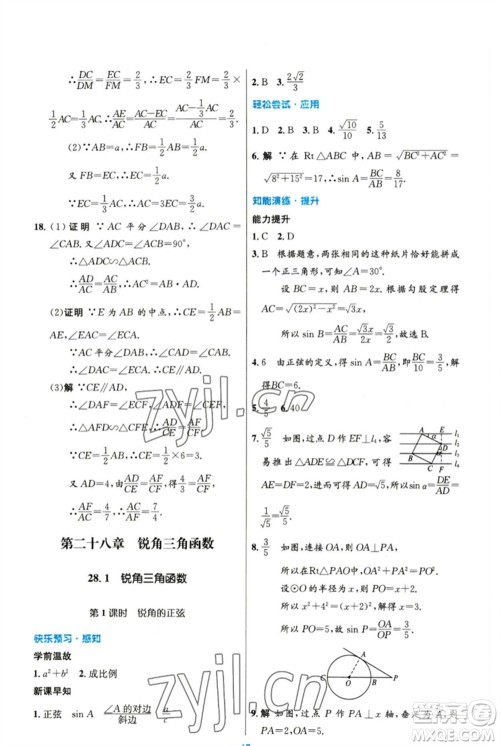 ∴ DC/DM = EC/FM = 2/3, ∴ EC = 2/3 FM = 2/3 ×
1/2 AC = 1/3 AC, ∴ AE/AC = (AC-EC)/AC = (AC-1/3 AC)/AC = 2/3.
(2) ∵ AB=a, ∴ FB = 1/2 AB = 1/2 a.
又 ∵ FB=EC, ∴ EC = 1/2 a.
∵ EC = 1/3 AC, ∴ AC = 3EC = 3/2 a.
18. (1) 证明 ∵ AC 平分∠DAB, ∴ ∠DAC=∠CAB. 又 ∵ ∠ADC=∠ACB=90°,
∴ △ADC∽△ACB.
∴ AD/AC = AC/AB, ∴ AC²=AB·AD.
(2)证明 ∵ E 为 AB 的中点, ∴ CE = 1/2 AB=AE, ∴ ∠EAC=∠ECA.
∵ ∠DAC=∠CAB, ∴ ∠DAC=∠ECA, ∴ CE∥AD.
(3)解 ∵ CE∥AD,
∴ ∠DAF=∠ECF, ∠ADF=∠CEF,
∴ △AFD∽△CFE, ∴ AD/CE = AF/CF.
∵ CE = 1/2 AB, ∴ CE = 1/2 × 6 = 3.
又 ∵ AD=4, 由 AD/CE = AF/CF, 得 4/3 = AF/CF,
∴ AF/AC = 4/7.
第二十八章 锐角三角函数
28.1 锐角三角函数
第 1 课时 锐角的正弦
快乐预习·感知
学前温故
1. a²+b² 2. 成比例
新课早知
1. 正弦 sin A ∠A 的对边/斜边
2. B 3. 2√2/3
轻松尝试·应用
1. D 2. A 3. D 4. √10/10 5. 5/13
6. 解 ∵ 在 Rt△ABC 中, AB=√(BC²+AC²)=
√(8²+15²)=17, ∴ sin A = BC/AB = 8/17.
知能演练·提升
能力提升
1. C 2. D
3. B 根据题意,两张相同的这种纸片恰好能拼成一个正三角形,可知∠A=30°.
设 BC=x, 则 AB=2x. 根据勾股定理得 AC=√((2x)²-x²)=√3x,
所以 sin B = AC/AB = √3x/2x = √3/2, 故选 B.
4. 6 由正弦的定义,得 sin A = BC/AB, 即 BC/10 = 3/5, 解得 BC=6.
5. 4/5 6. 40
7. √5/5 如图,过点 D 作 EF⊥l₄, 容
易推出△AED≌△DFC, 则
AE=DF=2, AD=√5. 所以 sin α = DE/AD
= √5/5.
8. 3/5 如图,连接 OA, 所以 OA⊥PA,
所以△OPA 为直角三角形.
因为☉O 的半径为 3, PA=4,
所以 PO=5. 故 sin P = OA/OP = 3/5.
9. 解 如图,过点 A 作 AD⊥BC,